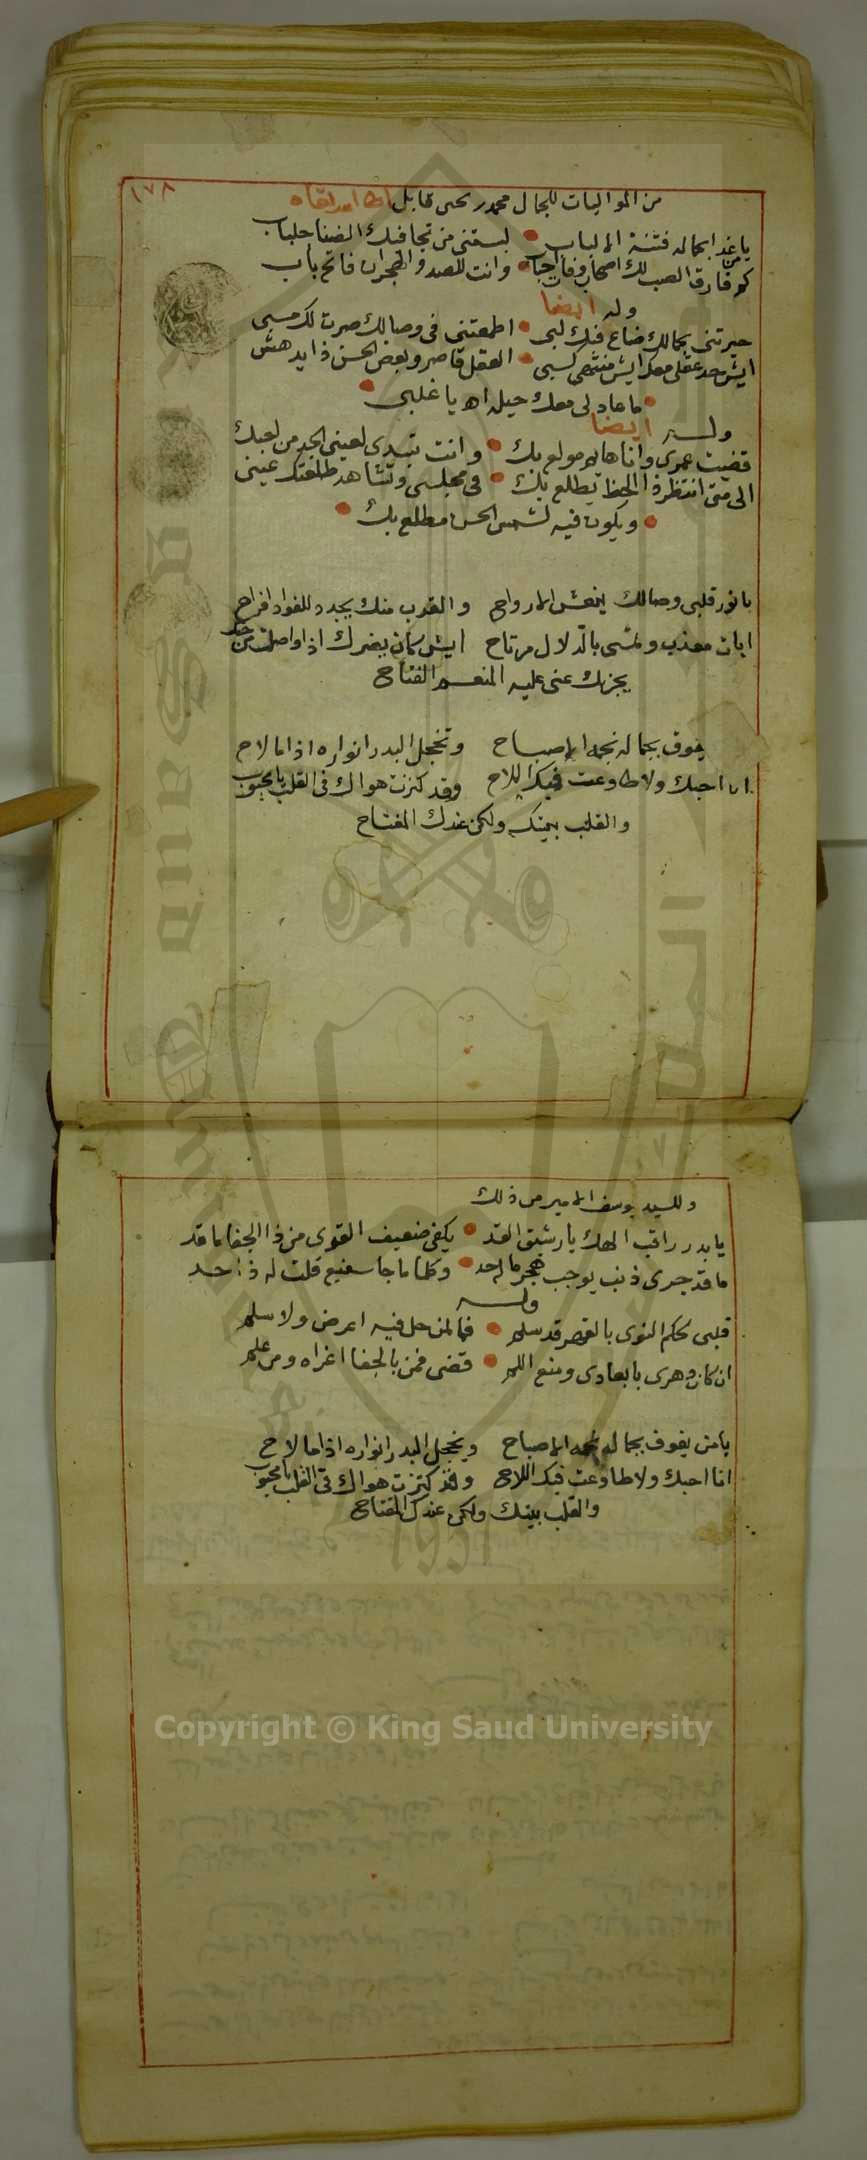 ١٧٨
من المواليات للجمال محمد بن يحيى قابل
يا من غدا بجماله فتنة الالباب لبستني من تجافيك الضنا جلباب
كم فارق الصب لك اصحاب وفارق احباب وانت للصد والهجران فاتح باب
وله ايضا
حيرتني بجمالك ضاع فيك لبي اطمعتني في وصالك صرت لك مسبي
ايش حد عقلي معك ايش منتهى كسبي العقل قاصر وبعض الحسن ذا يدهش
ما عاد لي معك حيله اه يا غلبي
وله ايضا
قضيت عمري وانا هايم مولع بك وانت تبدي لعيني الجد من لعبك
الى متى انتظر ذا الحظ يطلع بك في مجلسي وتشاهد طلعتك عيني
ويكون فيه لشمس الحسن مطلع بك
يا نور قلبي وصالك ينعش الارواح والقرب منك يجدد للفواد افراح
ابات معذب وتمسي بالدلال مرتاح ايش كان يضرك اذا واصلت من
يجزيك عني عليه المنعم الفتاح
يفوق بجماله نجمه الاصباح وتخجل البدر انواره اذا ما لاح
انا احبك ولا طاوعت فيك اللاح وقد كنزت هواك في القلب يا محبوب
والقلب بيتك ولكن عندك المفتاح
وللسيد يوسف الامير من ذلك
يا بدر راقب الهك يا رشيق القد يكفي ضعيف القوى من ذا الجفا ما قد
ما قد جرى ذنب يوجب هجر ماله حد وكلما جا سفيع قلت له ذا حد
وله
قلبي لحكم النوى بالقهر قد سلم فما لمن حل فيه اعرض ولا سلم
ان كان دهري بابعادي ومنع اللم قضى فمن بالجفا اغراه ومن علم
يا من يفوق بجماله نجمه الاصباح ويخجل البدر انواره اذا ما لاح
انا احبك ولا طاوعت فيك اللاح وقد كنزت هواك في القلب يا محبوب
والقلب بيتك ولكن عندك المفتاح
Copyright © King Saud University
1957